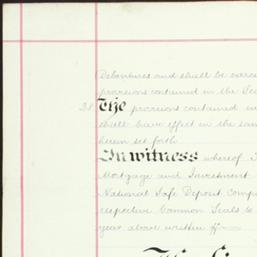 Debentures and shall be exerc
provisions contained in the Sec
28 The provisions contained in
shall have effect in the sam
herein set forth
In witness whereof I
Mortgage and Investment
National Safe Deposit Comp
respective Common Seals to
year above written